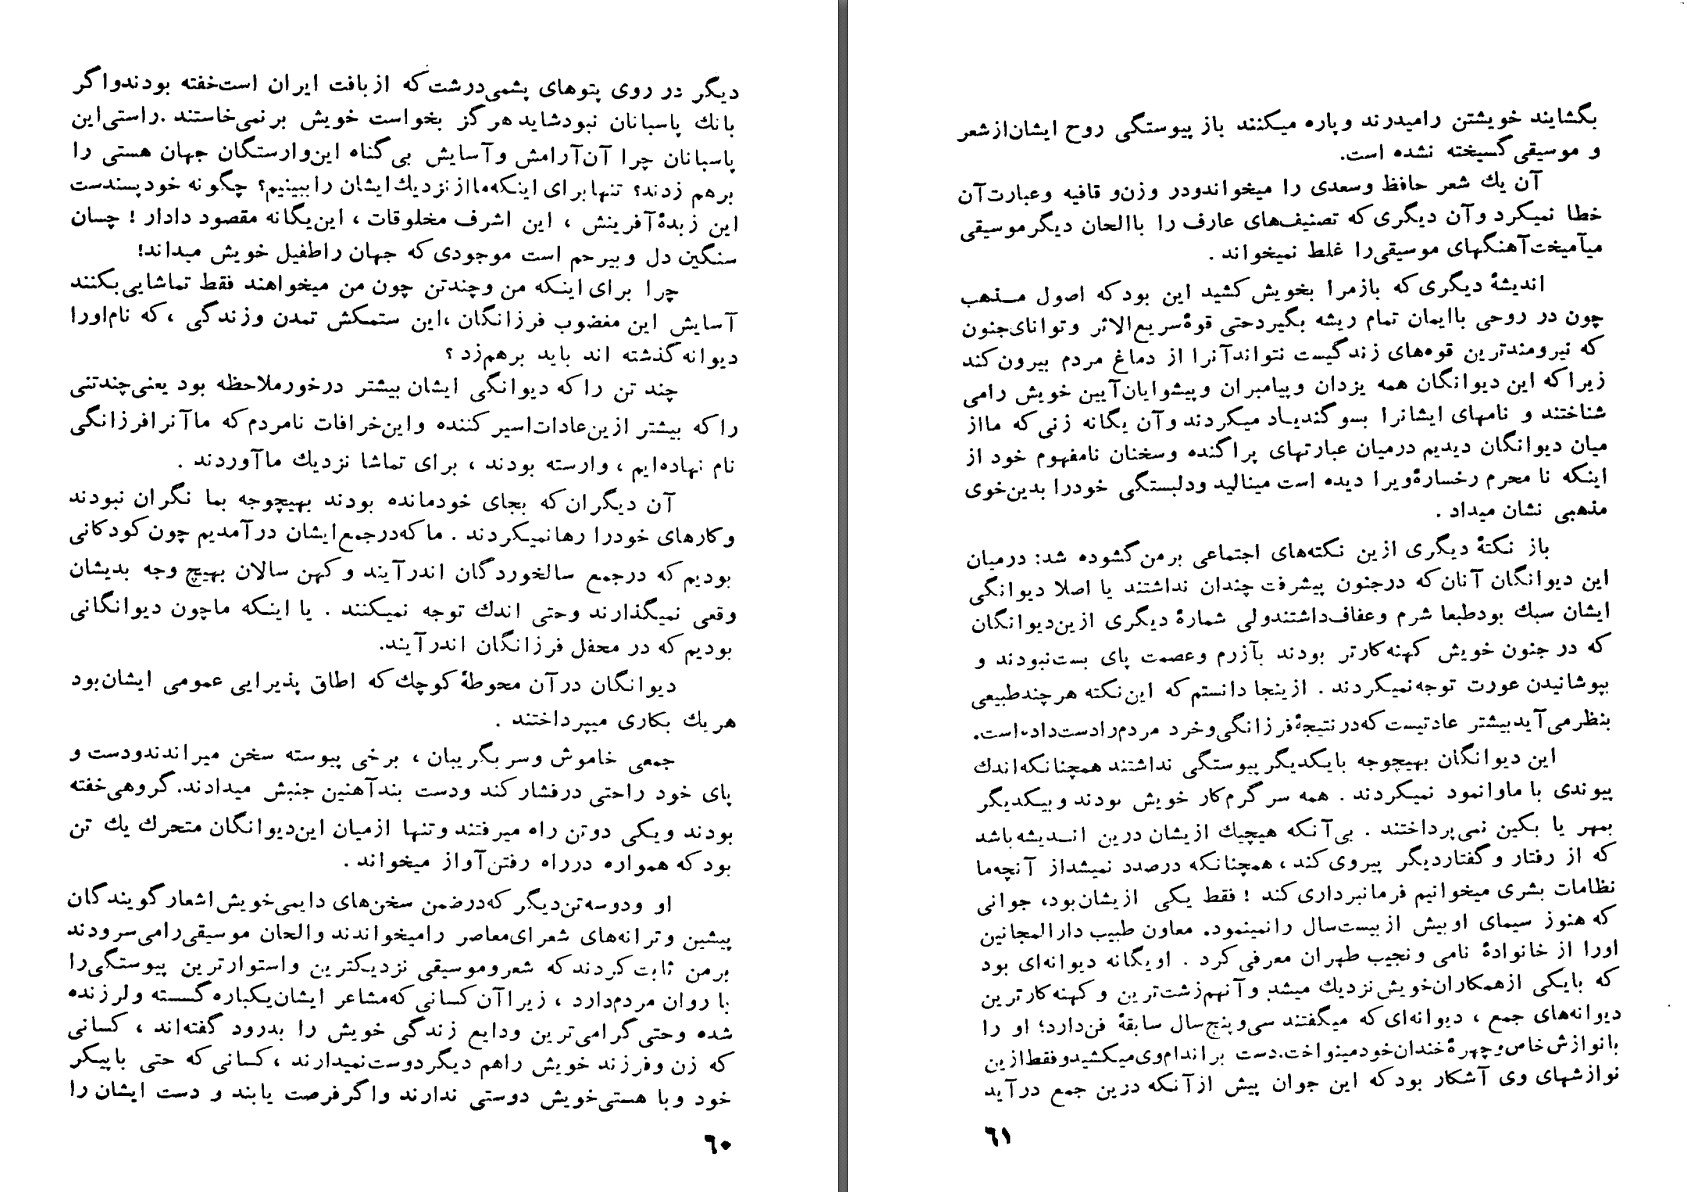 دیگر در روی پتوهای پشمی‌درشت‌که ازبافت ایران است‌خفته بودندواگر
بانك پاسبانان نبودشاید هرگز بخواست خویش برنمی‌خاستند .راستی‌این
پاسبانان چرا آن‌آرامش وآسایش بی‌گناه این‌وارستگان جهان هستی را
برهم زدند؟ تنهابرای اینکه‌مااز نزدیك‌ایشان راببینیم؟ چگونه خودپسندست
این زبدهٔ آفرینش ، این اشرف مخلوقات ، این‌یگانه مقصود دادار ! چسان
سنگین دل وبیرحم است موجودی‌که جهان راطفیل خویش میداند!
چرا برای‌اینکه من وچندتن چون من میخواهند فقط تماشایی‌بکنند
آسایش این مغضوب فرزانگان ،این ستمکش تمدن وزندگی ،که نام‌اورا
دیوانه‌گذشته اند باید برهم‌زد ؟
چند تن راکه دیوانگی ایشان بیشتر درخورملاحظه بود یعنی‌چندتنی
راکه بیشتر ازین‌عادات‌اسیر کننده واین‌خرافات نامردم‌که ماآنرافرزانگی
نام نهاده‌ایم ، وارسته بودند ، برای تماشا نزدیك ماآوردند .
آن دیگران‌که بجای خودمانده بودند بهیچوجه بما نگران نبودند
وکارهای خودرا رهانمیکردند . ماکه‌درجمع‌ایشان درآمدیم چون‌کودکانی
بودیم‌که درجمع سالخوردگان اندرآیند وکهن سالان بهیچ وجه بدیشان
وقعی نمیگذارند وحتی اندك توجه نمیکنند . یا اینکه ماچون دیوانگانی
بودیم‌که در محفل فرزانگان اندرآیند.
دیوانگان درآن محوطهٔ کوچك‌که اطاق پذیرایی عمومی ایشان‌بود
هریك بکاری میپرداختند .
جمعی خاموش وسربگریبان ، برخی پیوسته سخن میراندندودست و
پای خود راحتی درفشار کند ودست بندآهنین جنبش میدادند.گروهی‌خفته
بودند ویکی دوتن راه میرفتند وتنها ازمیان این‌دیوانگان متحرك یك تن
بودکه همواره درراه رفتن‌آواز میخواند .
او ودوسه‌تن‌دیگر که‌درضمن سخن‌های دایمی‌خویش‌اشعارگویندگان
پیشین وترانه‌های شعرای‌معاصر رامیخواندند والحان موسیقی‌رامی‌سرودند
برمن ثابت‌کردندکه شعروموسیقی نزدیکترین واستوارترین پیوستگی‌را
با روان مردم‌دارد ، زیراآن‌کسانی‌که‌مشاعر ایشان‌یکباره‌گسسته ولرزنده
شده وحتی‌گرامی‌ترین ودایع زندگی خویش را بدرود گفته‌اند ، کسانی
که زن وفرزند خویش راهم دیگردوست‌نمیدارند ،کسانی‌که حتی باپیکر
خود وبا هستی‌خویش دوستی ندارند واگرفرصت یابند و دست ایشان را
٦٠
بگشایند خویشتن رامیدرند وپاره میکنند باز پیوستگی روح ایشان‌ازشعر
و موسیقی‌گسیخته نشده است.
آن یك شعر حافظ وسعدی را میخواندودر وزن‌و قافیه وعبارت‌آن
خطا نمیکرد وآن دیگری‌که تصنیف‌های عارف را باالحان دیگرموسیقی
میآمیخت‌آهنگهای موسیقی‌را غلط نمیخواند .
اندیشهٔ دیگری‌که بازمرا بخویش‌کشید این بودکه اصول مـذهب
چون در روحی باایمان تمام ریشه بگیردحتی قوهٔ سریع‌الاثر وتوانای‌جنون
که نیرومندترین قوه‌های زندگیست نتواندآنرا از دماغ مردم بیرون‌کند
زیراکه این دیوانگان همه یزدان وپیامبران وپیشوایان‌آیین خویش رامی
شناختند و نامهای ایشانرا بسوگندیـاد میکردند وآن یگانه زنی‌که مااز
میان دیوانگان دیدیم درمیان عبارتهای پراگنده وسخنان نامفهوم خود از
اینکه نا محرم رخسارهٔ ویرا دیده است مینالید ودلبستگی خودرا بدین‌خوی
مذهبی نشان میداد .
باز نکتهٔ دیگری ازین نکته‌های اجتماعی برمن‌گشوده شد: درمیان
این دیوانگان آنان‌که درجنون پیشرفت چندان نداشتند یا اصلا دیوانگی
ایشان سبك بودطبعا شرم وعفاف‌داشتندولی شمارهٔ دیگری ازین‌دیوانگان
که در جنون خویش کهنه‌کارتر بودند بآزرم وعصمت پای بست‌نبودند و
بپوشانیدن عورت توجه‌نمیکردند . ازینجا دانستم‌که این‌نکته هرچندطبیعی
بنظرمی‌آیدبیشتر عادتیست‌که‌درنتیجهٔ فرزانگی‌وخرد مردم‌رادست‌داده‌است.
این دیوانگان بهیچوجه بایکدیگر پیوستگی نداشتند همچنانکه‌اندك
پیوندی با ماوانمود نمیکردند . همه سرگرم‌کار خویش بودند وبیکدیگر
بمهر یا بکین نمی‌پرداختند . بی‌آنکه هیچیك ازیشان درین انـدیشه‌باشد
که از رفتار وگفتاردیگر پیروی‌کند ، همچنانکه درصدد نمیشداز آنچه‌ما
نظامات بشری میخوانیم فرمانبرداری‌کند ! فقط یکی ازیشان‌بود، جوانی
که هنوز سیمای اوبیش ازبیست‌سال رانمینمود. معاون طبیب دارالمجانین
اورا از خانوادهٔ نامی ونجیب طهران معرفی‌کرد . اویگانه دیوانه‌ای بود
که بایکی ازهمکاران‌خویش‌نزدیك میشد وآنهم‌زشت‌ترین وکهنه‌کارترین
دیوانه‌های جمع ، دیوانه‌ای‌که میگفتند سی‌وپنج‌سال سابقهٔ فن‌دارد؛ او را
بانوازش‌خاص‌وچهرهٔ خندان‌خودمینواخت.دست براندام‌وی‌میکشیدوفقط‌ازین
نوازشهای وی آشکار بودکه این جوان پیش ازآنکه درین جمع درآید
٦١